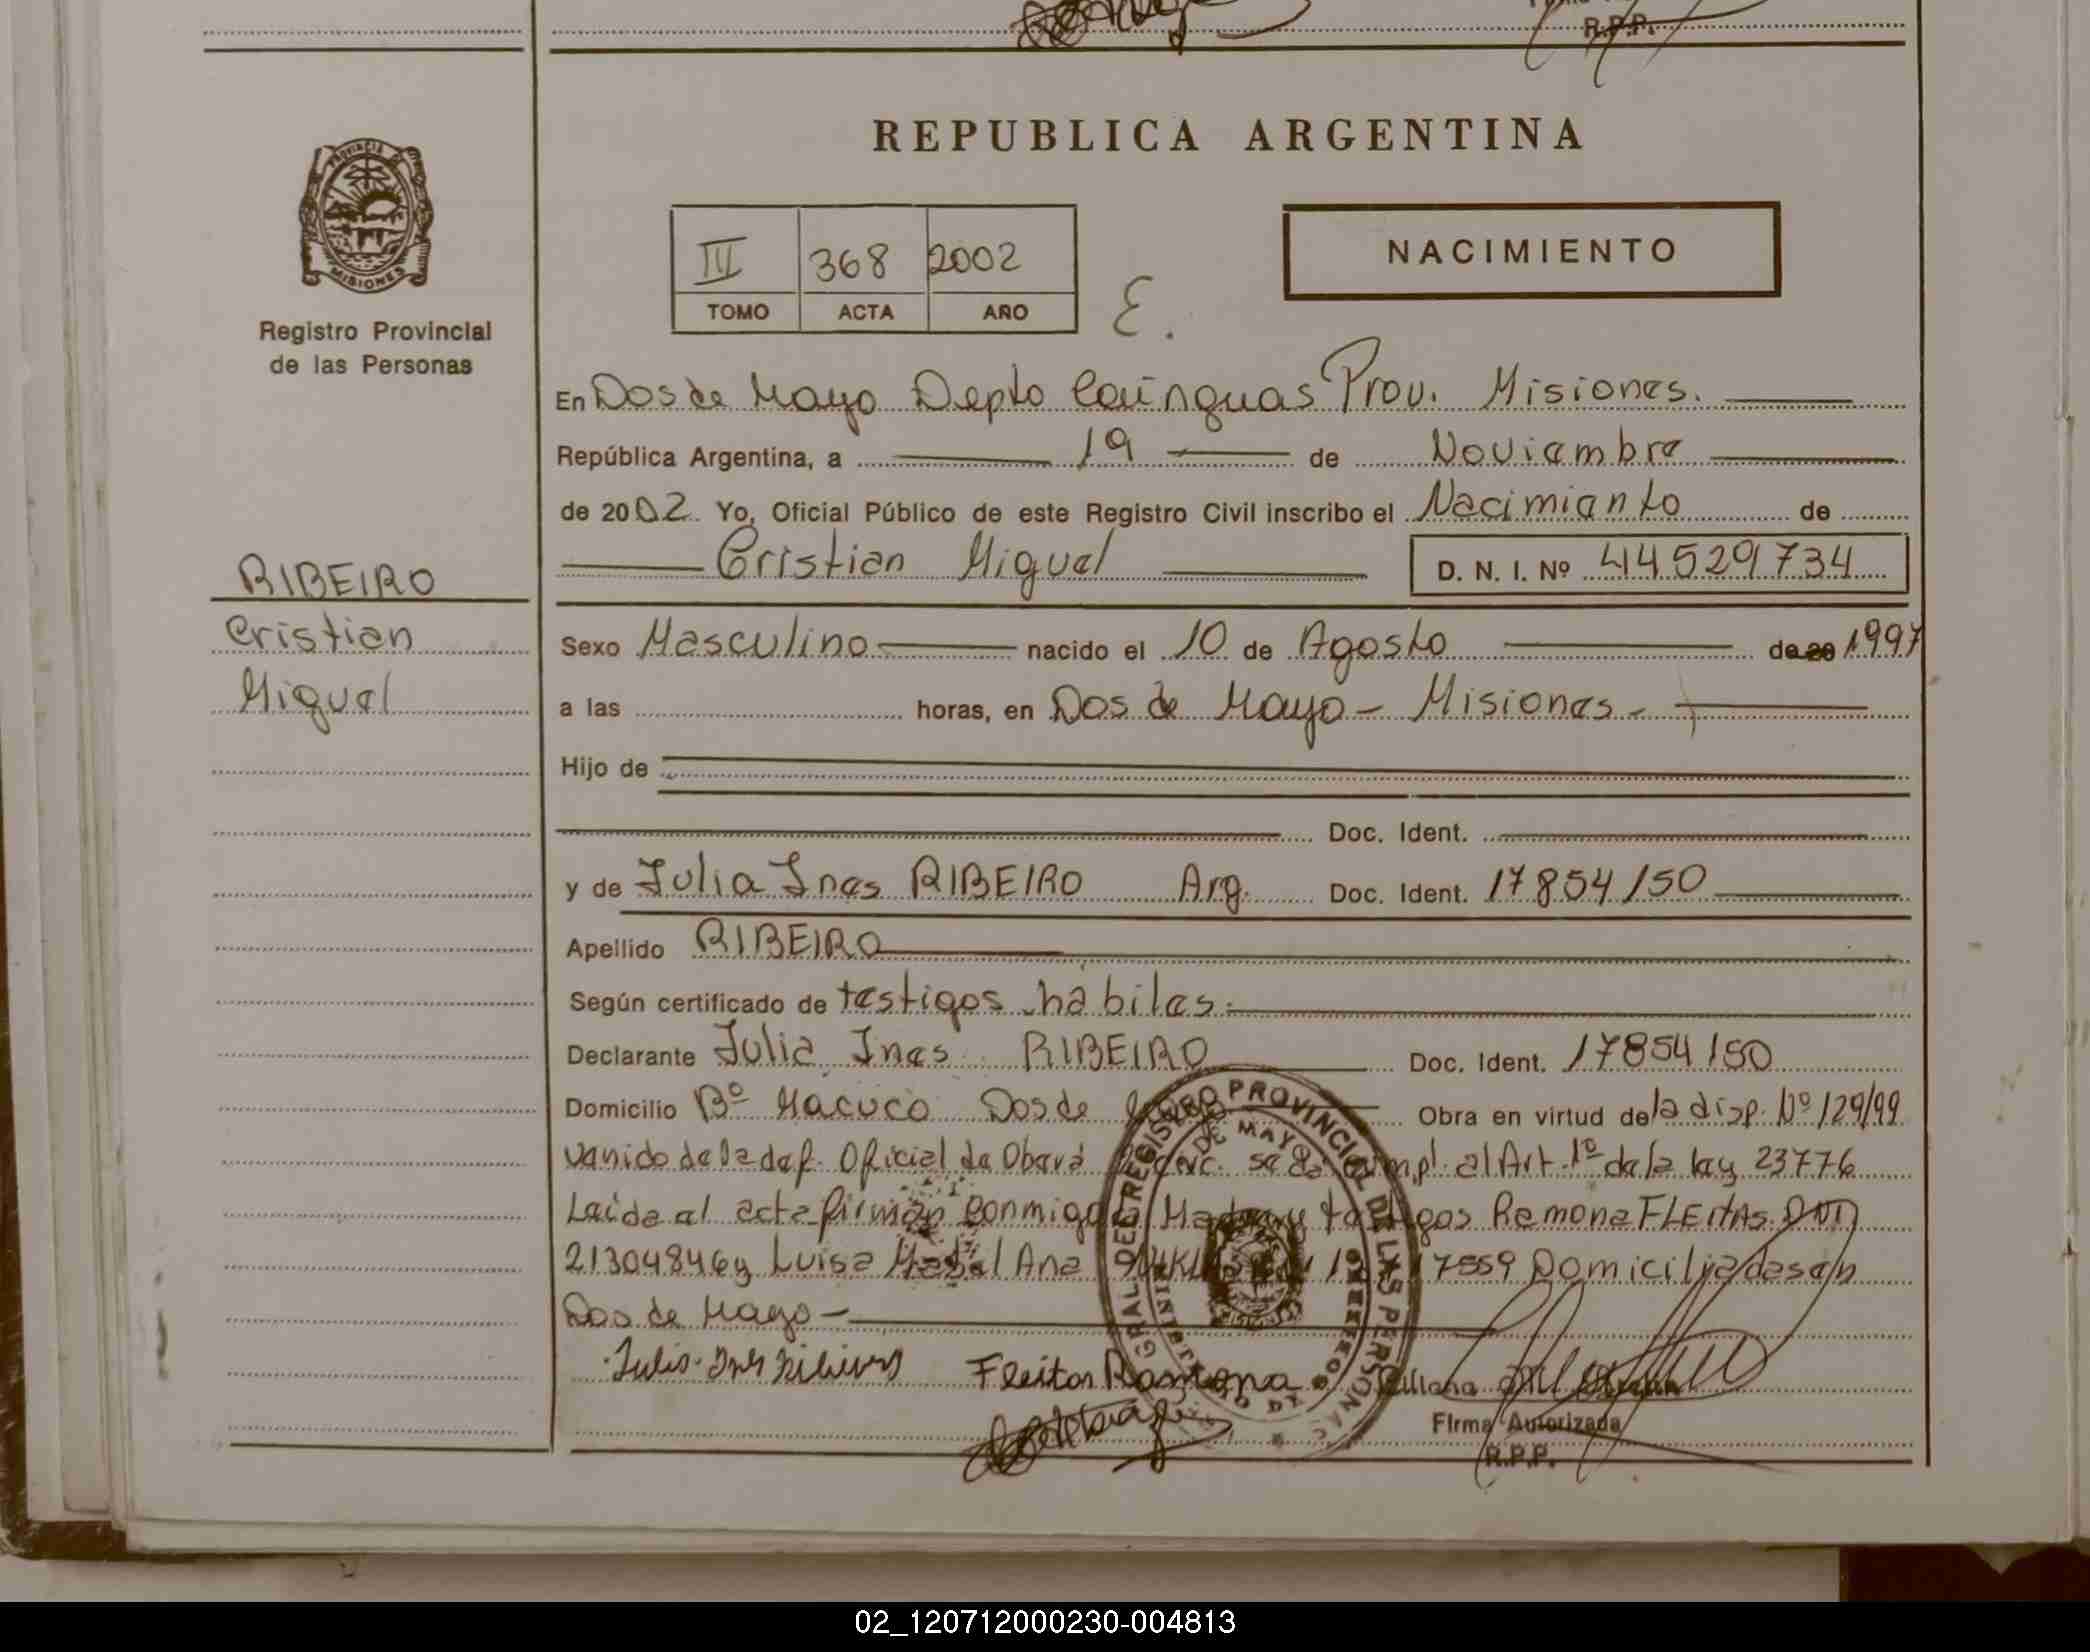 R.P.P.
REPUBLICA ARGENTINA
PROVINCIA DE
MISIONES
Registro Provincial
de las Personas
III 368 2002
TOMO ACTA AÑO
E.
NACIMIENTO
En Dos de Mayo Depto Cainguas Prov. Misiones.
República Argentina, a 19 de Noviembre
de 2002 Yo, Oficial Público de este Registro Civil inscribo el Nacimiento de
Cristian Miguel D. N. I. Nº 44529734
RIBEIRO
Cristian
Miguel
Sexo Masculino nacido el 10 de Agosto de 20 1997
a las horas, en Dos de Mayo - Misiones -
Hijo de
Doc. Ident.
y de Julia Ines RIBEIRO Arg. Doc. Ident. 17854150
Apellido RIBEIRO
Según certificado de testigos habiles.
Declarante Julia Ines RIBEIRO Doc. Ident. 17854150
Domicilio Bº Macuco Dos de Obra en virtud de la disp. Nº 129/99
venido de la def. Oficial de Oberá se da cumpl. al Art. 1º de la ley 23776
Leida el acta firman conmigo la Madre y testigos Ramona FLEITAS DNI
21304846 y Luisa Mabel Ana 17559 Domiciliadas en
Dos de Mayo -
GRAL DEL REGISTRO PROVINCIAL DE LAS PERSONAS
DOS DE MAYO
Julia Ines Ribeiro Fleitas Ramona
Firma Autorizada
R.P.P.
02_120712000230-004813